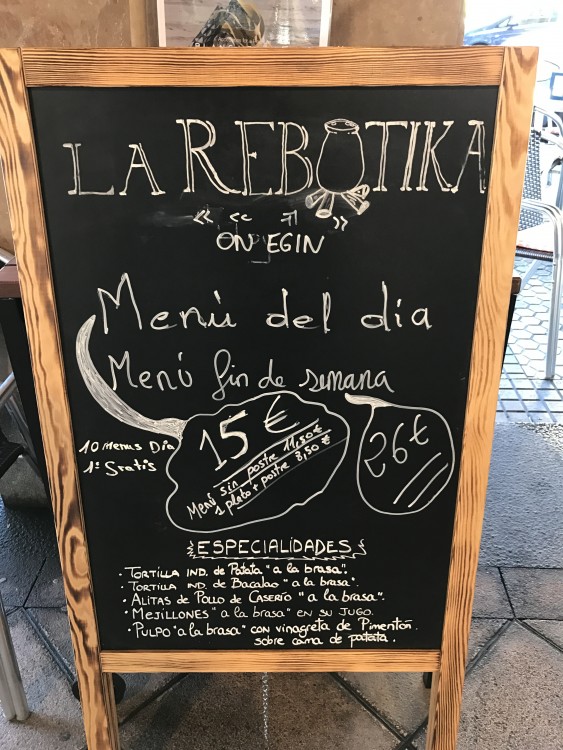 LA REBOTIKA
ON EGIN
Menú del día
Menú fin de semana
10 menus Dia
1º Gratis
15 €
Menú sin postre 11,50€
1 plato + postre 8,50€
26€
ESPECIALIDADES
· TORTILLA IND. de Patata "a la brasa".
· TORTILLA IND. de Bacalao "a la brasa".
· ALITAS de POLLO de CASERÍO "a la brasa".
· MEJILLONES "a la brasa" EN SU JUGO.
· PULPO "a la brasa" con vinagreta de Pimentón.
sobre cama de patata.